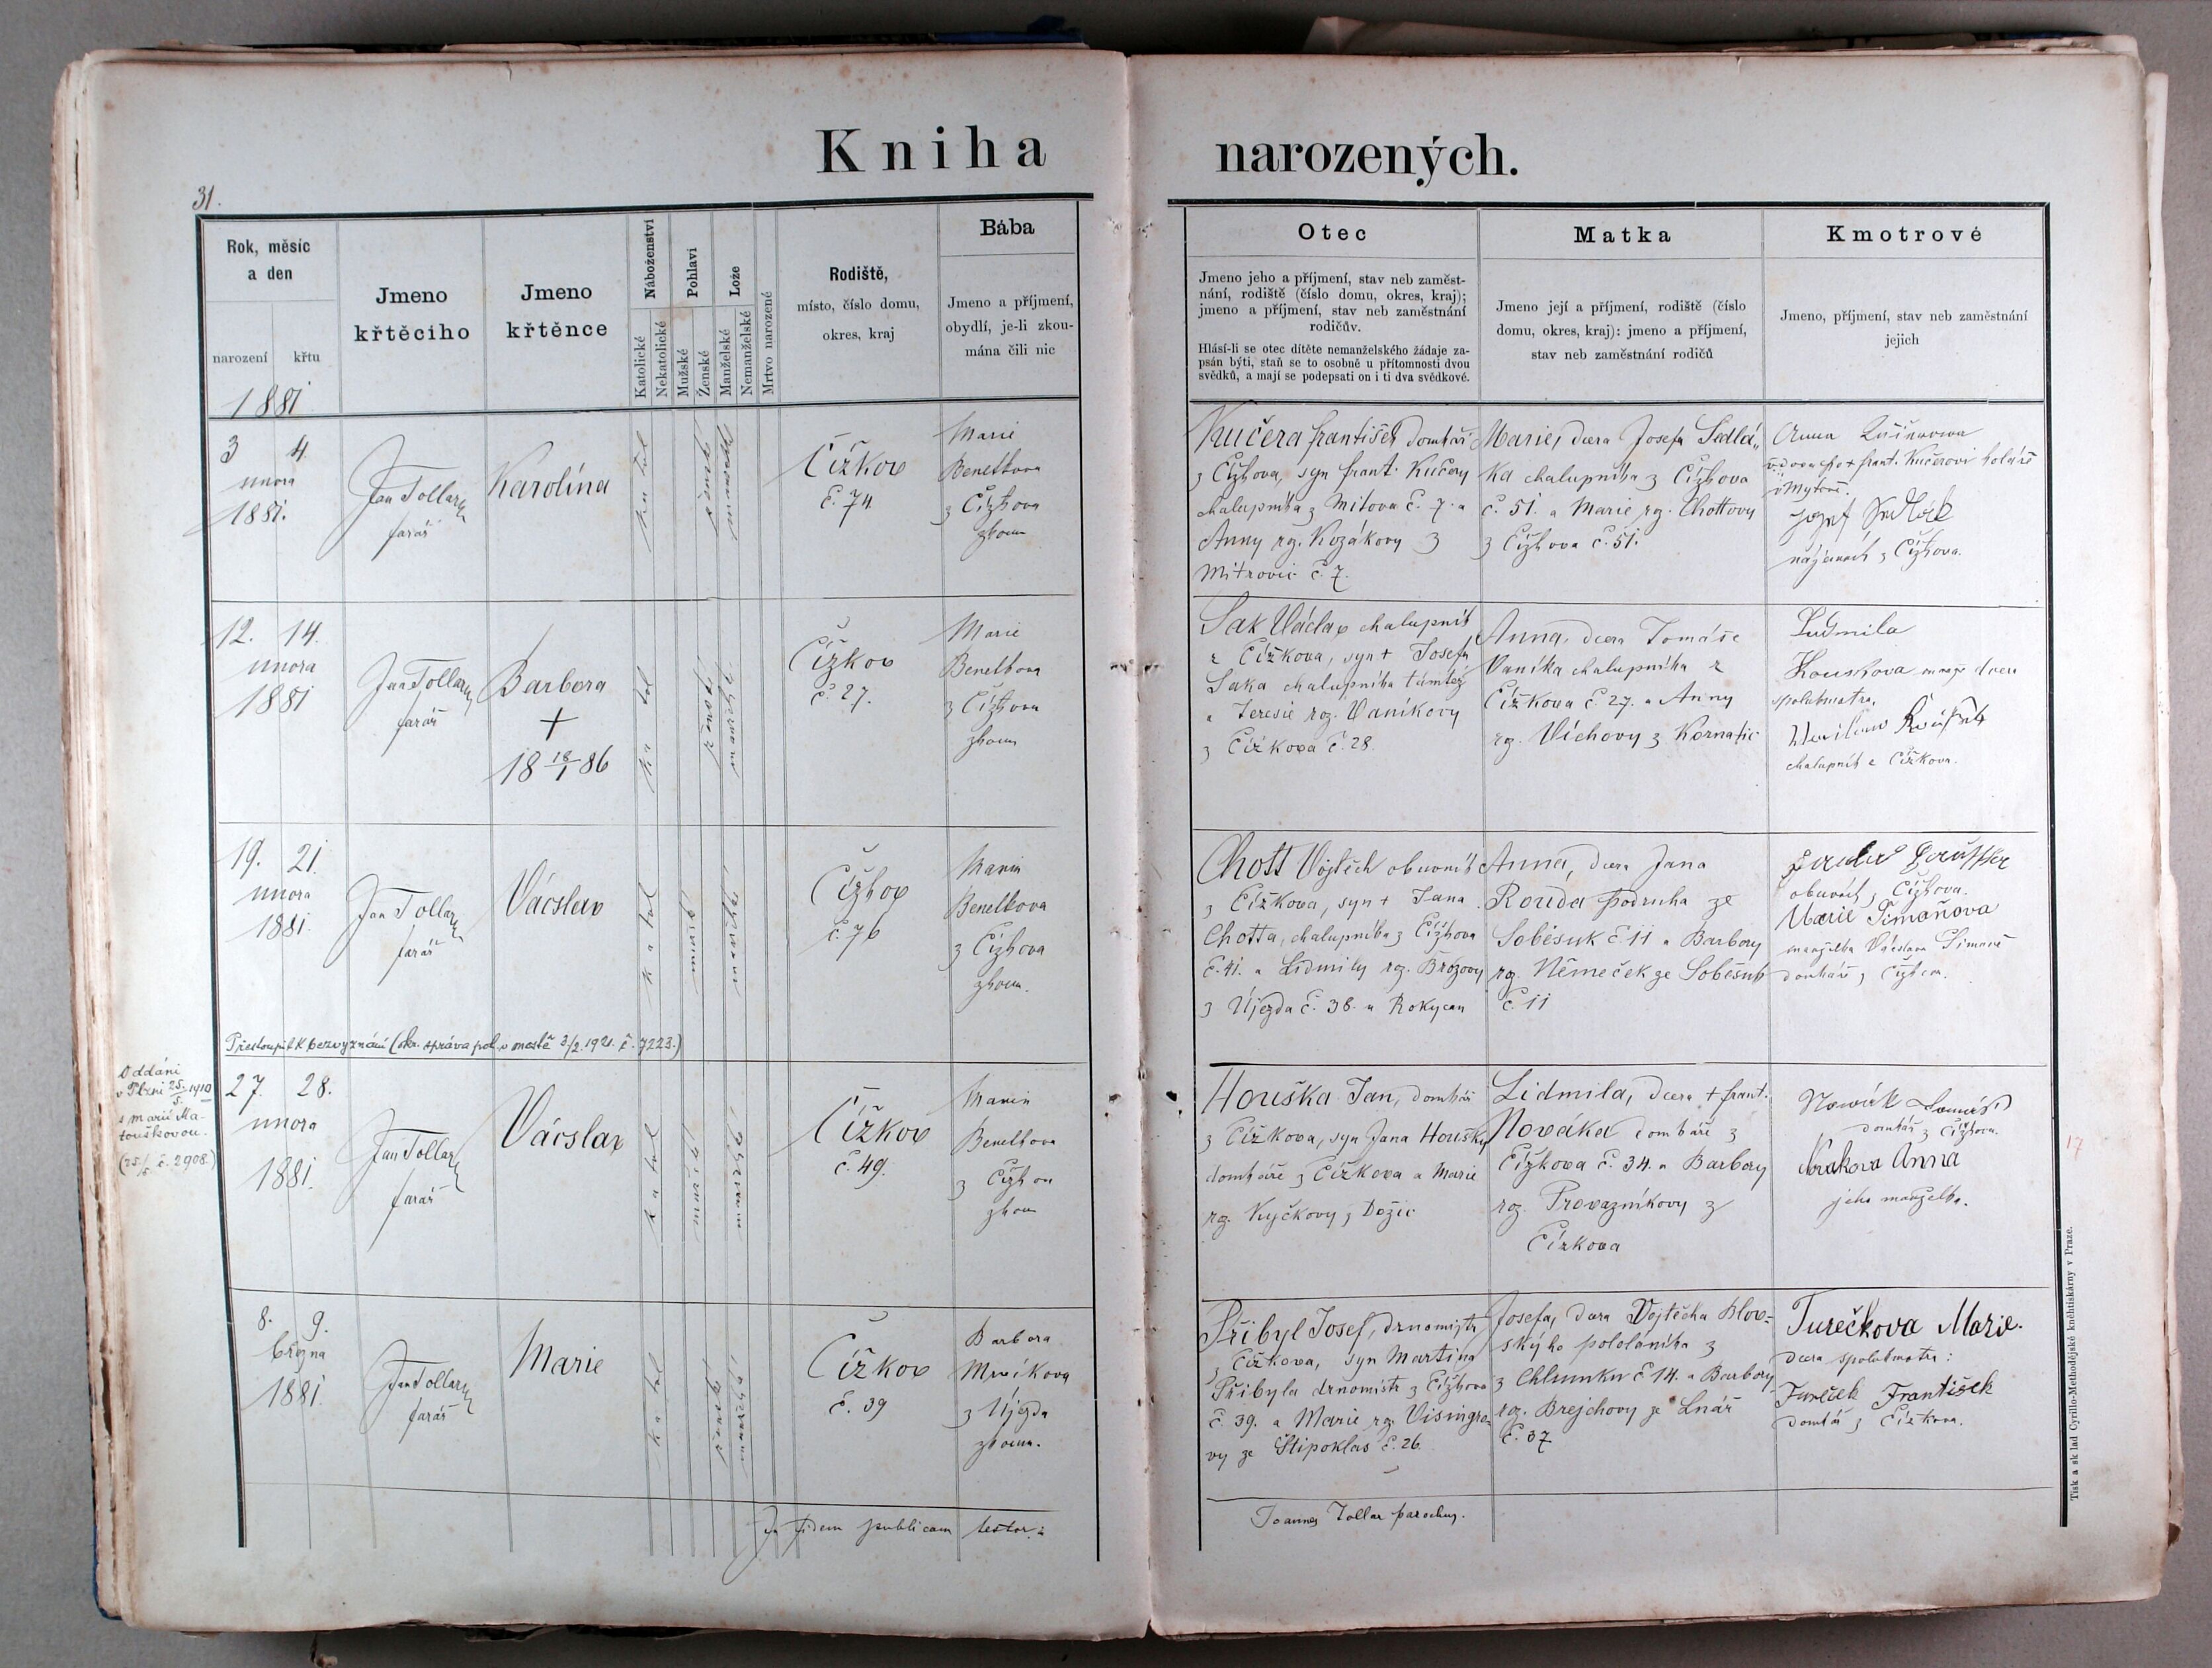 Kniha narozených.
31.
Rok, měsíc
a den
narození křtu
1881
Jmeno
křtěcího
Jmeno
křtěnce
Náboženství
Katolické
Nekatolické
Pohlaví
Mužské
Ženské
Lože
Manželské
Nemanželské
Mrtvo narozené
Rodiště,
místo, číslo domu,
okres, kraj
Bába
Jmeno a příjmení,
obydlí, je-li zkou-
mána čili nic
Otec
Jmeno jeho a příjmení, stav neb zaměst-
nání, rodiště (číslo domu, okres, kraj);
jmeno a příjmení, stav neb zaměstnání
rodičův.
Hlásí-li se otec dítěte nemanželského žádaje za-
psán býti, staň se to osobně u přítomnosti dvou
svědků, a mají se podepsati on i ti dva svědkové.
Matka
Jmeno její a příjmení, rodiště (číslo
domu, okres, kraj): jmeno a příjmení,
stav neb zaměstnání rodičů
Kmotrové
Jmeno, příjmení, stav neb zaměstnání
jejich
3 4
unora
1881.
Jan Tollar
farář
Karolína
Čížkov
č. 74
Marie
Benetkova
z Čížkova
zkoum
Kučera František domkář
z Čížkova, syn Frant. Kučery
chalupníka z Mítova č. 7. a
Anny rz. Kozákovy z
Mitrovic č. 7.
Marie, dcera Josefa Sedlá-
ka chalupníka z Čížkova
č. 51. a Marie rz. Chottovy
z Čížkova č. 51.
Anna
Josef Sedlák
z Čížkova.
12. 14.
unora
1881
Jan Tollar
farář
Barbora
+
18 18/1 86
Čížkov
č. 27.
Marie
Benetkova
z Čížkova
zkoum
Sak Václav chalupník
z Čížkova, syn + Josefa
Saka chalupníka tamtéž
a Teresie roz. Vaníkovy
z Čížkova č. 28.
Anna, dcera Tomáše
Vaníka chalupníka z
Čížkova č. 27. a Anny
rz. Víchovy z Kornatic
Ludmila
spolukmotra.
chalupník z Čížkova.
19. 21.
unora
1881.
Jan Tollar
farář
Václav
Čížkov
č. 76
Marie
Benetkova
z Čížkova
zkoum.
Chott Vojtěch obuvník
z Čížkova, syn + Jana
Chotta, chalupníka z Čížkova
č. 41. a Lidmily rz. Brožovy
z Újezda č. 38. u Rokycan
Anna, dcera Jana
Rouda podruha ze
Soběsuk č. 11 a Barbory
rz. Němeček ze Soběsuk
č. 11
obuvník z Čížkova.
Marie Šimaňova
manželka Václava Šimaně
domkáře z Čížkova.
Přestoupil k bezvyznání (okr. správa pol. v mostě 3/2. 1921. č. 7223.)
Oddáni
v Plzni 25./5. 1910
s Marií Ma-
touškovou.
(25./5. č. 2908.)
27. 28.
unora
1881.
Jan Tollar
farář
Václav
Čížkov
č. 49.
Marie
Benetkova
z Čížkova
zkoum
Houška Jan, domkář
z Čížkova, syn Jana Houšky
domkáře z Čížkova a Marie
rz. Kyčkovy z Dožic
Lidmila, dcera + Frant.
Nováka domkáře z
Čížkova č. 34. a Barbory
roz. Provazníkovy z
Čízkova
Nowák Tomáš
domkář z Čížkova.
Anna
jeho manželka.
17
8. 9.
března
1881.
Jan Tollar
farář
Marie
Čížkov
č. 39
Barbora
Mrvíkova
z Újezda
zkoum.
Přibyl Josef, drnomistr
z Čížkova, syn Martina
Přibyla drnomistr z Čížkova
č. 39. a Marie rz. Visingro-
vy ze Štipoklas č. 26.
Josefa, dcera Vojtěcha Blov-
ského pololáníka z
Chlumku č 14. a Barbory
roz. Brejchovy ze Lnář
č. 37
Turečkova Marie.
dcera spolukmotra:
Tureček František
domkář z Čížkova.
In fidem publicam testor:
Joannes Tollar parochus.
Tisk a sklad Cyrillo-Methodějské knéhtiskárny v Praze.